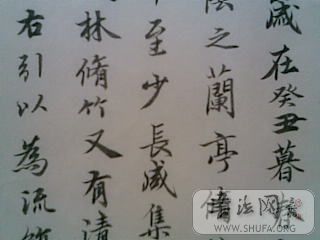 歲在癸丑暮春
陰之蘭亭脩
至少長咸集
林脩竹又有清
右引以為流
WWW.SHUFA.ORG